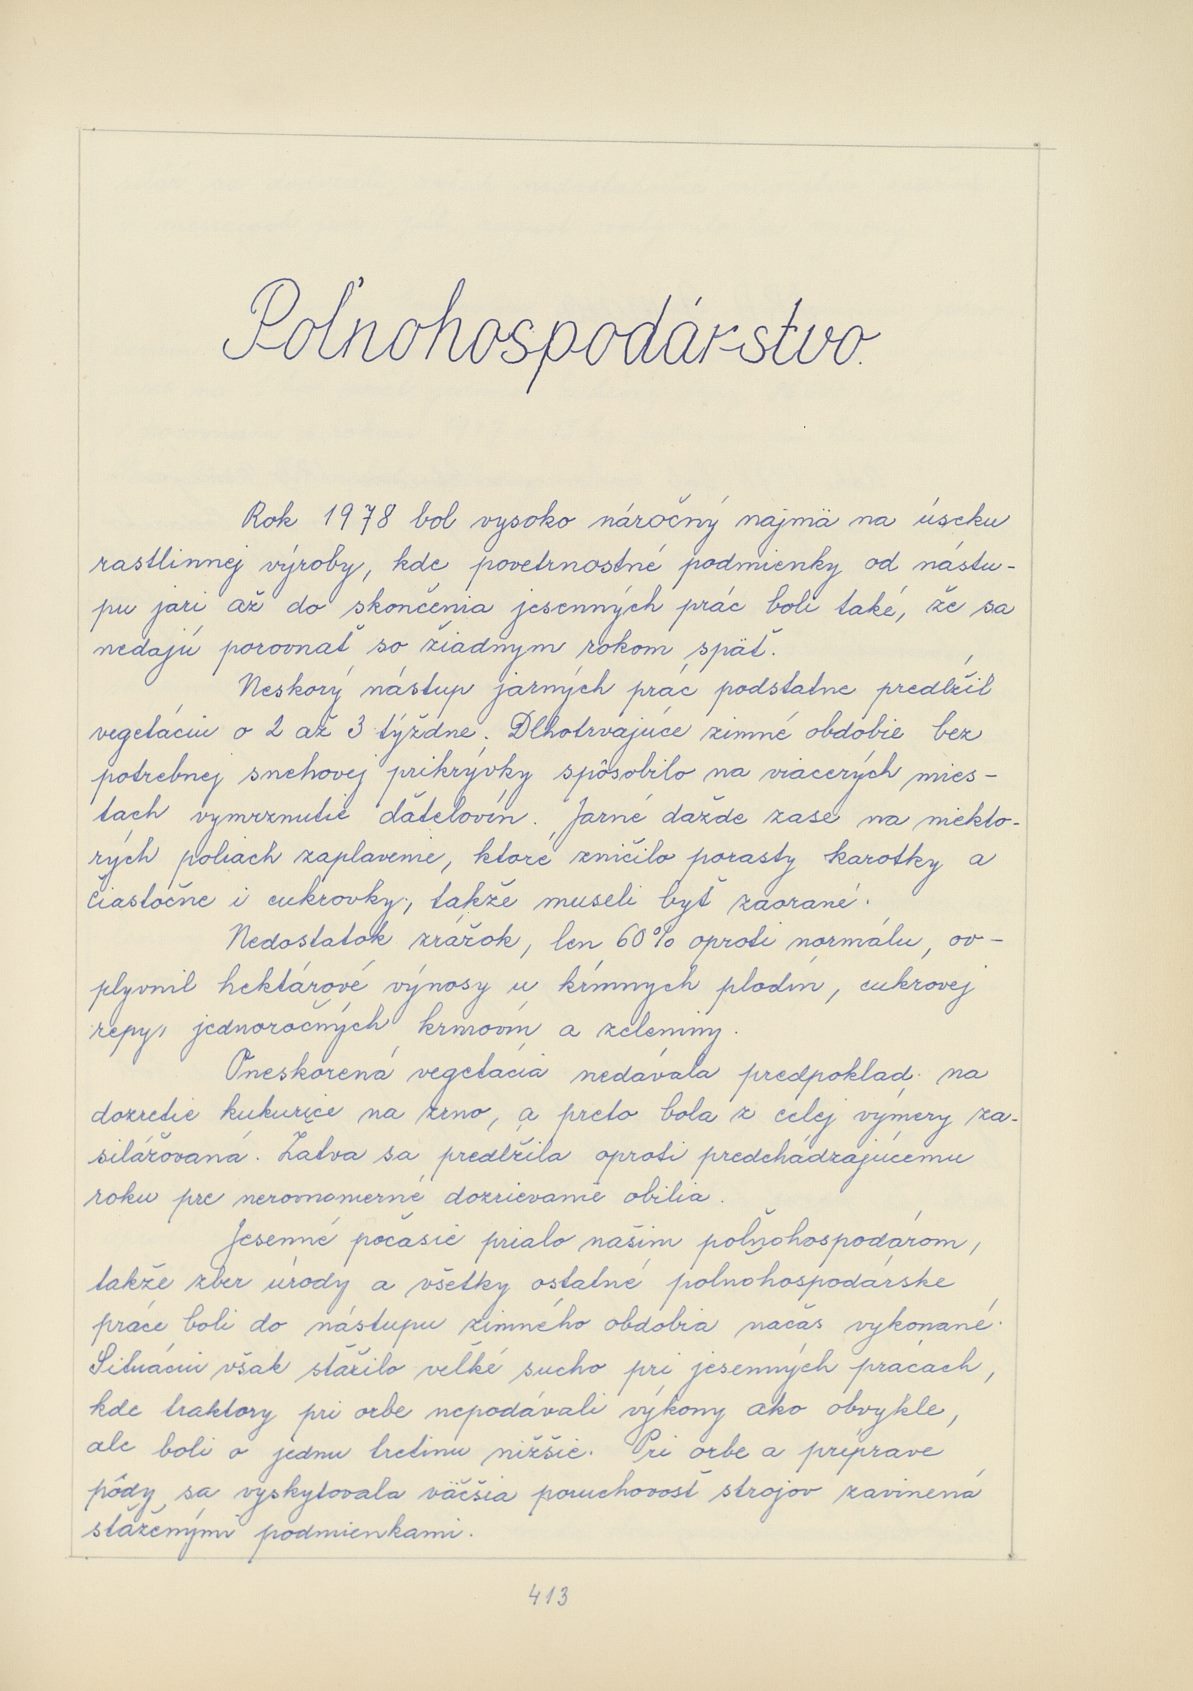 Poľnohospodárstvo.
Rok 1978 bol vysoko náročný najmä na úseku
rastlinnej výroby, kde povetrnostné podmienky od nástu-
pu jari až do skončenia jesenných prác boli také, že sa
nedajú porovnať so žiadnym rokom späť.
Neskorý nástup jarných prác podstatne predĺžil
vegetáciu o 2 až 3 týždne. Dlhotrvajúce zimné obdobie bez
potrebnej snehovej prikrývky spôsobilo na viacerých mies-
tach vymrznutie ďatelovín. Jarné dažde zase na niekto-
rých poliach zaplavenie, ktoré zničilo porasty karotky a
čiastočne i cukrovky, takže museli byť zaorané.
Nedostatok zrážok, len 60% oproti normálu, ov-
plyvnil hektárové výnosy u kŕmnych plodín, cukrovej
repy, jednoročných krmovín a zeleniny.
Oneskorená vegetácia nedávala predpoklad na
dozretie kukurice na zrno, a preto bola z celej výmery za-
silážovaná. Žatva sa predĺžila oproti predchádzajúcemu
roku pre nerovnomerné dozrievanie obilia.
Jesenné počasie prialo našim poľnohospodárom,
takže zber úrody a všetky ostatné poľnohospodárske
práce boli do nástupu zimného obdobia načas vykonané.
Situáciu však stážilo veľké sucho pri jesenných prácach,
kde traktory pri orbe nepodávali výkony ako obvykle,
ale boli o jednu tretinu nižšie. Pri orbe a príprave
pôdy sa vyskytovala väčšia poruchovosť strojov zavinená
stáženými podmienkami.
413